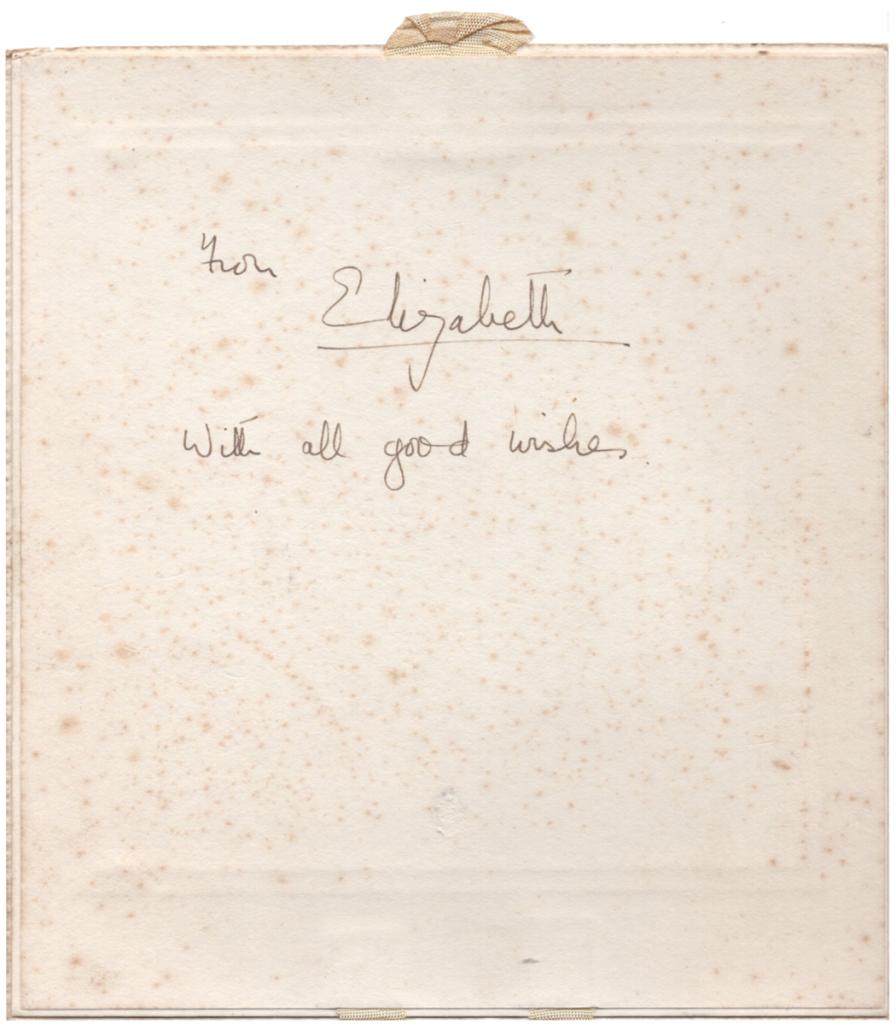 From
Elizabeth
With all good wishes.